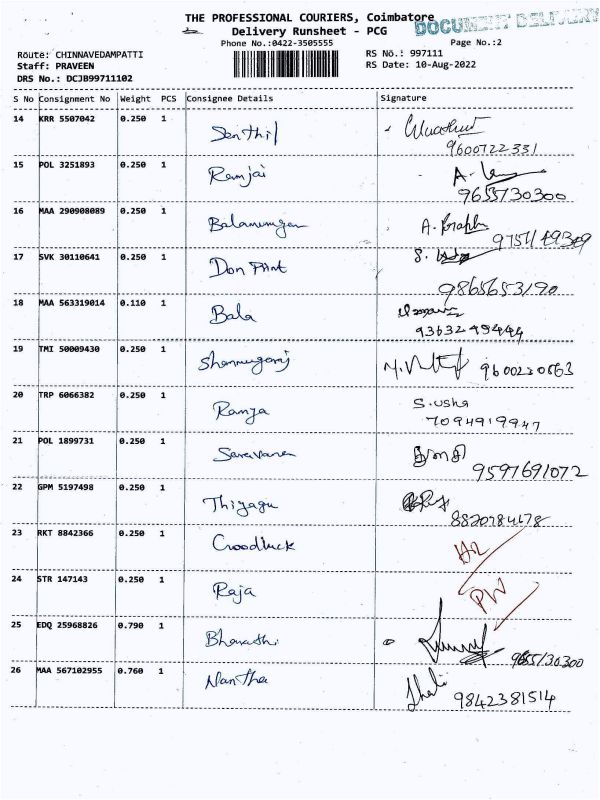 THE PROFESSIONAL COURIERS, Coimbatore
DOCUMENT DELIVERY
Delivery Runsheet - PCG
Phone No.:0422-3505555
Page No.:2
Route: CHINNAVEDAMPATTI
RS No.: 997111
Staff: PRAVEEN
RS Date: 10-Aug-2022
DRS No.: DCJB99711102
S No Consignment No Weight PCS Consignee Details Signature
14 KRR 5507042 0.250 1 Senthil
9600722331
15 POL 3251893 0.250 1 Ramjai A.
9655730300
16 MAA 290908089 0.250 1 Balamurugan A.
17 SVK 30110641 0.250 1 Don Print S.
9865653190
18 MAA 563319014 0.110 1 Bala
9363249444
19 TMI 50009430 0.250 1 Shanmugaraj
20 TRP 6066382 0.250 1 Ramya S.usha
7094919947
21 POL 1899731 0.250 1 Saravanan துளசி
9597691072
22 GPM 5197498 0.250 1 Thiyagu
23 RKT 8842366 0.250 1 Goodluck
24 STR 147143 0.250 1 Raja PW
25 EDQ 25968826 0.790 1 Bharathi
9655730300
26 MAA 567102955 0.760 1 Nantha
9842381514